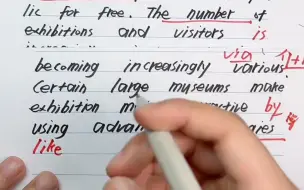 lic for free. The number of
exhibitions and visitors is
via
becoming increasingly various.
Certain large museums make
exhibition by
using
like